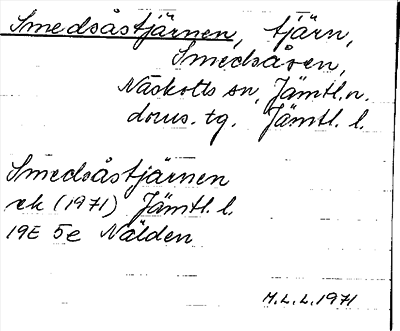 Smedsåstjärnen, tjärn,
Smedsåsen,
Näskotts sn, Jämtl.n.
doms. tg. Jämtl. l.
Smedsåstjärnen
ek (1971) Jämtl. l.
19E 5e Nälden
M.L.L. 1971